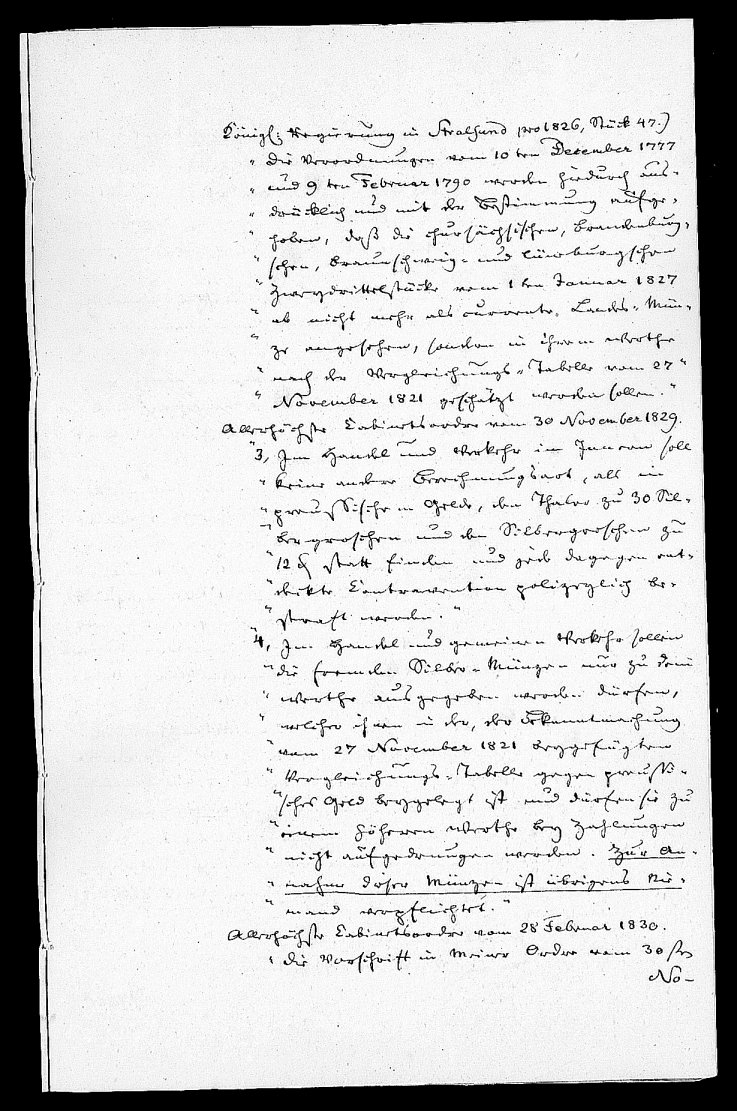 Königl: Regierung in Stralsund pro 1826, Stück 47.)
" Die Verordnungen vom 10ten December 1777
" und 9ten Februar 1790 werden hiedurch aus-
" drücklich und mit der Bestimmung aufge-
" hoben, daß die chursächsischen, brandenburg-
" schen, braunschweig- und lüneburgschen
" Zweydrittelstücke vom 1ten Januar 1827
" ab nicht mehr als currente, Landes-Mün-
" ze angesehen, sondern in ihrem Werthe
" nach der Vergleichungs-Tabelle vom 27"
" November 1821 geschätzt werden sollen."
Allerhöchste Cabinetsordre vom 30 November 1829.
"3, Im Handel und Verkehr im Innern soll
" keine andere Berechnungsart, als im
" preussischen Gelde, den Thaler zu 30 Sil-
" bergroschen und den Silbergroschen zu
" 12 ₰ statt finden und jede dagegen ent-
" deckte Contravention polizeylich be-
" straft werden."
"4, Im Handel und gemeinen Verkehr sollen
" die fremden Silber-Münzen nur zu dem
" Werthe ausgegeben werden dürfen,
" welcher ihnen in der, der Bekanntmachung
" vom 27 November 1821 beygefügten
" Vergleichungs-Tabelle gegen preussi-
" sches Geld beygelegt ist und dürfen sie zu
" einem höheren Werthe bey Zahlungen
" nicht aufgedrungen werden. Zur An-
" nahme dieser Münzen ist übrigens Nie-
" mand verpflichtet."
Allerhöchste Cabinetsordre vom 28 Februar 1830.
" Die Vorschrift in Meiner Ordre vom 30sten
No-